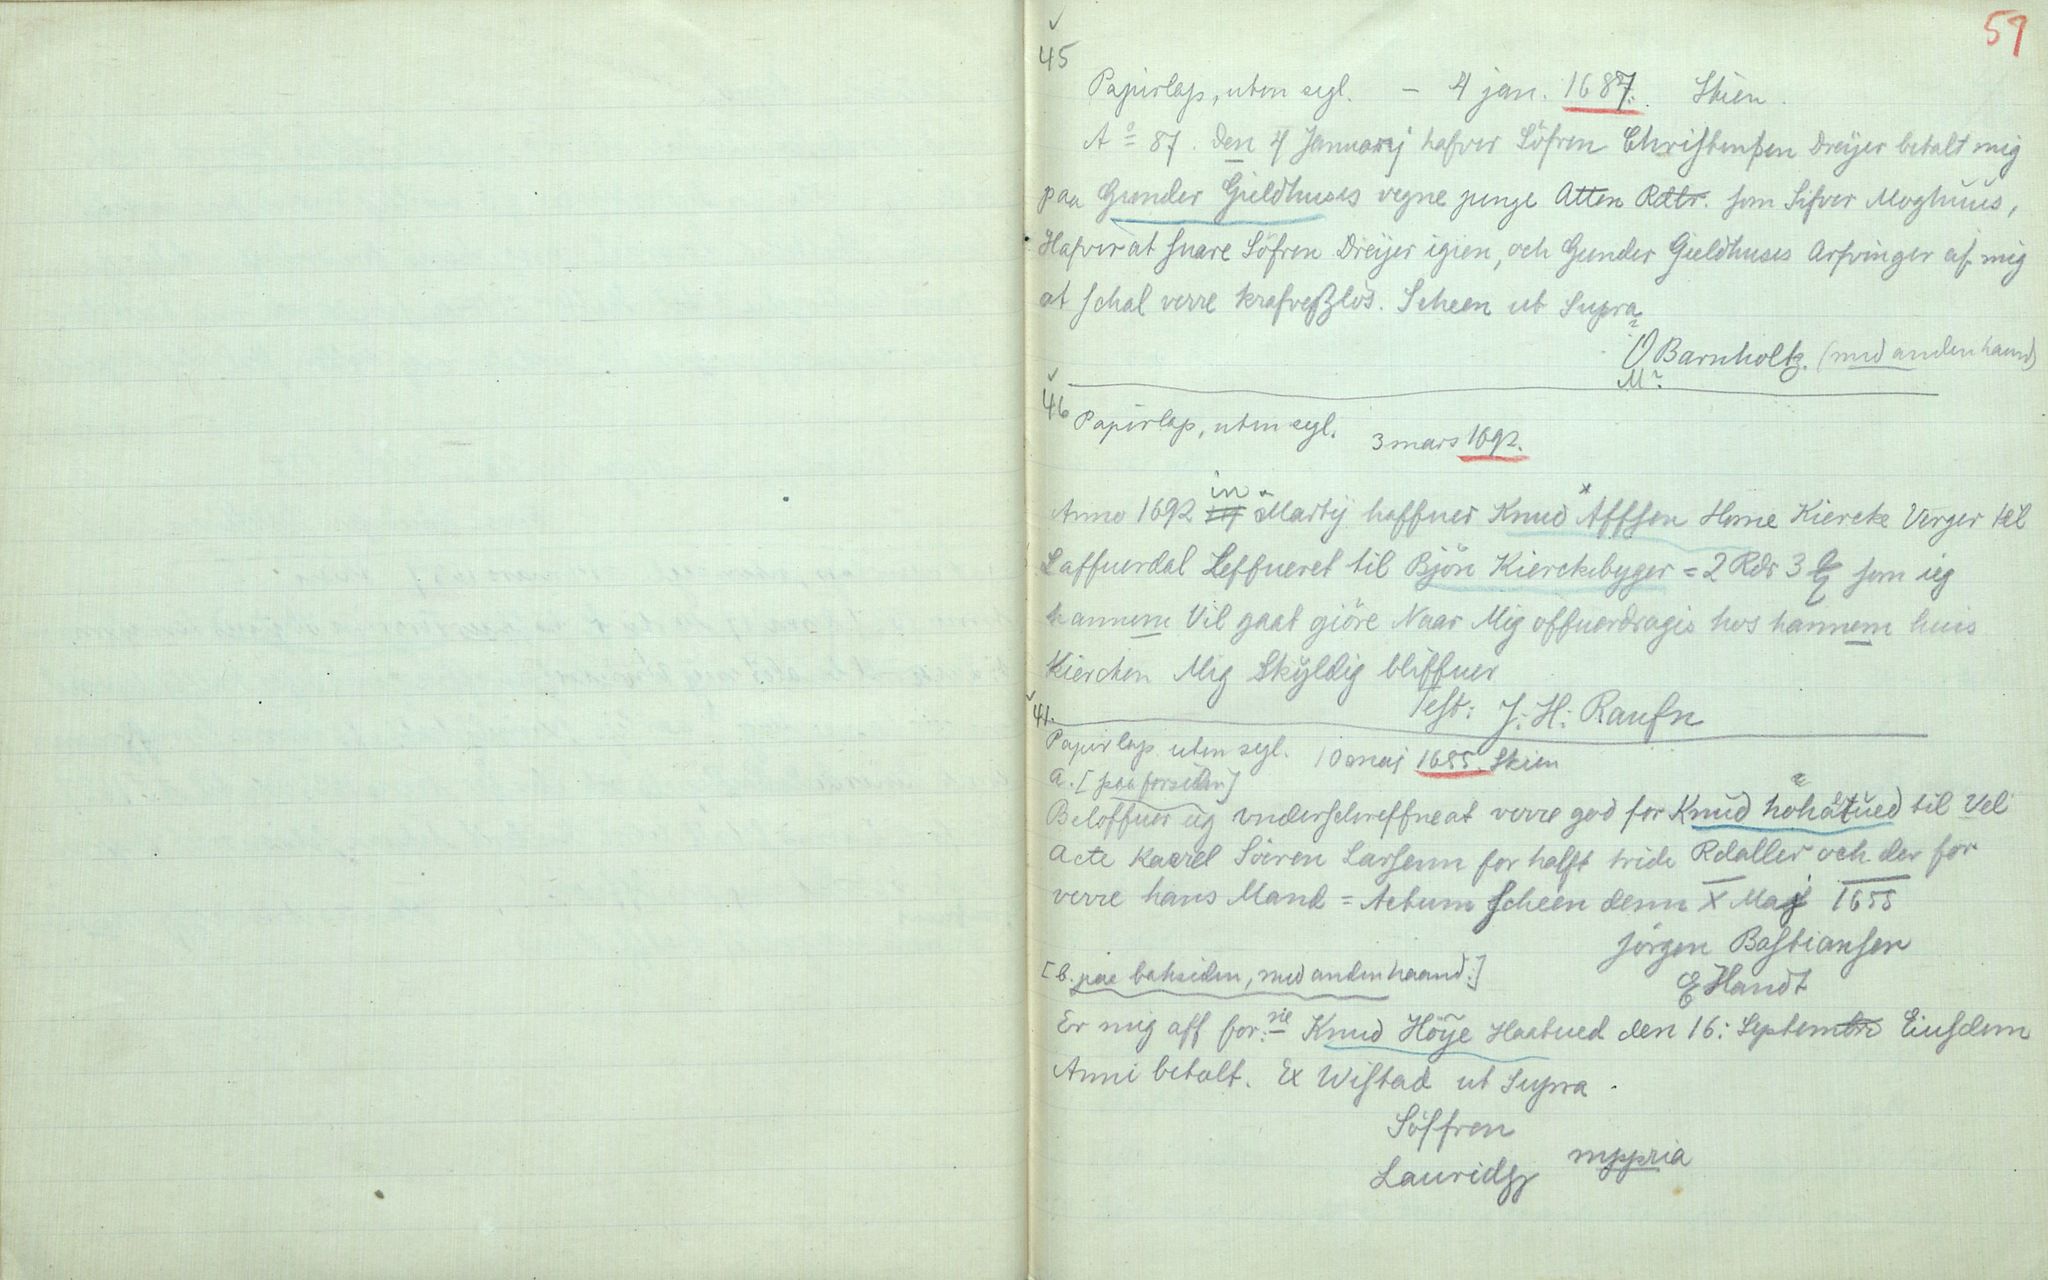 59
45
Papirlap, uten segl. – 4 jan. 1687. Skien.
Aº 87. den 4 Januarij hafver Söfren Christensen Dreijer betalt mig
paa Gunder Gieldhuses vegne penge Atten Rdlr. som Sifver Moghuus,
Hafver at suare Söfren Dreijer igien, och Gunder Gieldhuses Arfvinger af mig
at schal verre krafveszlös. Scheen ut Supra
Barnholtz. (med anden haand)
46
Papirlap, uten segl. 3 mars 1692.
Anno 1692 in Martij haffuer Knud Affsen Heme Kiercke Verger til
Laffuerdal Leffueret til Björn Kierckebyger = 2 Rdr 3 som ieg
hannem Vil gaat giöre Naar Mig offuerdragis hos hannem huis
Kierchen Mig Skyldig bliffuer
Test: J: H: Raufn
47.
Papirlap uten segl. 10 mai 1655. Skien
a. [paa forsiden]
Beloffuer ieg underschreffne at verre god for Knud höhatued til Vel
Acte Kaerel Söeren Larsenn for halft tride Rdaller och der for
verre hans Mand = Actum Scheen denn X Maij 1655
Jörgen Bastiansen
E Handt
[b. paa baksiden, med anden haand.]
Er mig aff for:ne Knud Höÿe Haatued den 16: Septembr Eiusdem
Anni betalt. Ex Wistad ut Supra.
Söffren
Lauridsz mppria